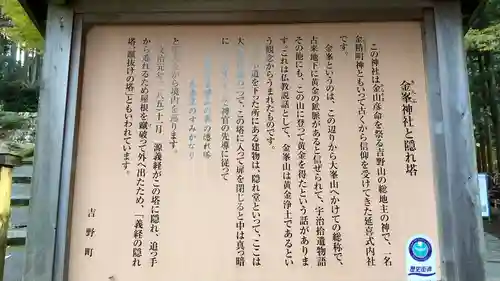 金峯神社と隠れ塔
この神社は金山毘命を祭る吉野山の総地主の神で、一名
金精明神ともいって古くから信仰を受けてきた延喜式内社
です。
金峯というのは、この辺りから大峯山へかけての総称で、
古来地下に黄金の鉱脈があると信ぜられて、宇治拾遺物語
その他にも、この山に登って黄金を得たという話がありま
す。これは仏教説話として、金峯山は黄金浄土であるとい
う観念からうまれたものです。
道を下った所にある建物は、隠れ堂といって、ここは
大 って、この塔に入って扉を閉じると中は真っ暗
に 神官の先導に従って
の奥の隠れ塔
のすみかなり
と から境内を巡ります。
文治元年(一一八五)十一月 源義経がこの塔に隠れ、追っ手
から逃れるため屋根を蹴破って外へ出たため、「義経の隠れ
塔、蹴抜けの塔」ともいわれています。
吉野町
歴史街道